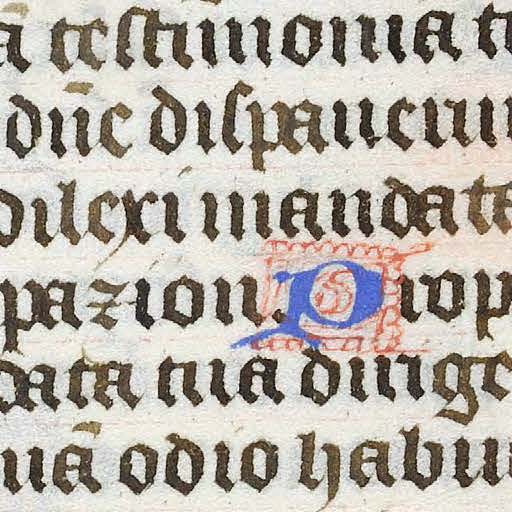 ā testimonia t
dn̄e dispaueru
dilexi mandata
pazion. Prop
data tua dirige
uā odio habu